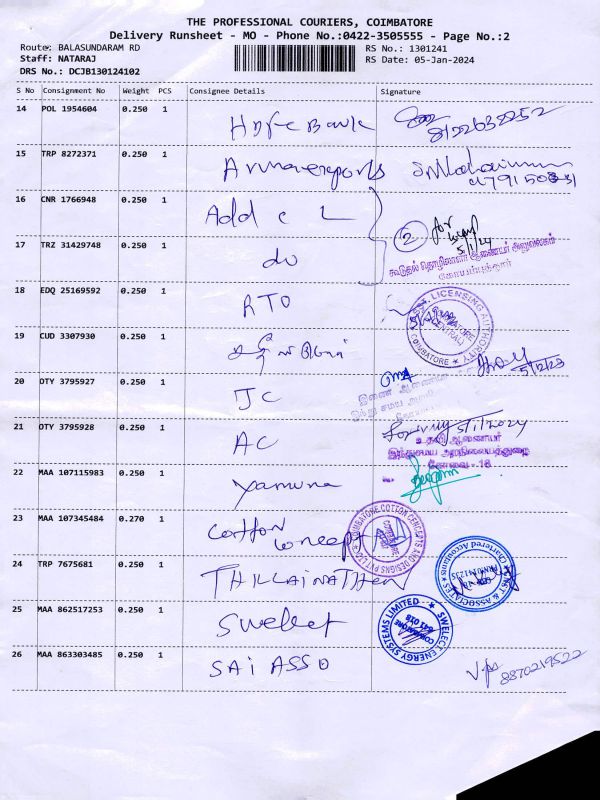 THE PROFESSIONAL COURIERS, COIMBATORE
Delivery Runsheet - MO - Phone No.:0422-3505555 - Page No.:2
Route: BALASUNDARAM RD RS No.: 1301241
Staff: NATARAJ RS Date: 05-Jan-2024
DRS No.: DCJB130124102
S No Consignment No Weight PCS Consignee Details Signature
14 POL 1954604 0.250 1 Hdfc Bank
15 TRP 8272371 0.250 1
16 CNR 1766948 0.250 1 Add C L 2 for
5/1/24
17 TRZ 31429748 0.250 1 do
கூடுதல் தொழிலாளர் ஆணையர் அலுவலகம்
கோயம்புத்தூர்
18 EDQ 25169592 0.250 1 RTO
LICENSING AUTHORITY
COIMBATORE
19 CUD 3307930 0.250 1
20 OTY 3795927 0.250 1 JC
இணை ஆணையர்
21 OTY 3795928 0.250 1 AC 5/1/2024
உதவி ஆணையர்
இந்துசமய அறநிலையத்துறை
கோவை - 18
22 MAA 107115983 0.250 1 Yamuna
23 MAA 107345484 0.270 1 Cotton Concept
COIMBATORE COTTON CONCEPTS AND DESIGNS PVT LTD
24 TRP 7675681 0.250 1 THILLAINATHEN
& ASSOCIATES
Chartered Accountants
25 MAA 862517253 0.250 1 Swelect
SWELECT ENERGY SYSTEMS LIMITED
COIMBATORE
641 018
26 MAA 863303485 0.250 1 SAI ASSO 8870219522